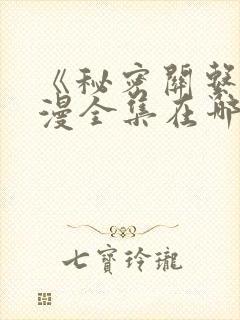 《秘密關繫
漫全集在哪
七寶玲瓏